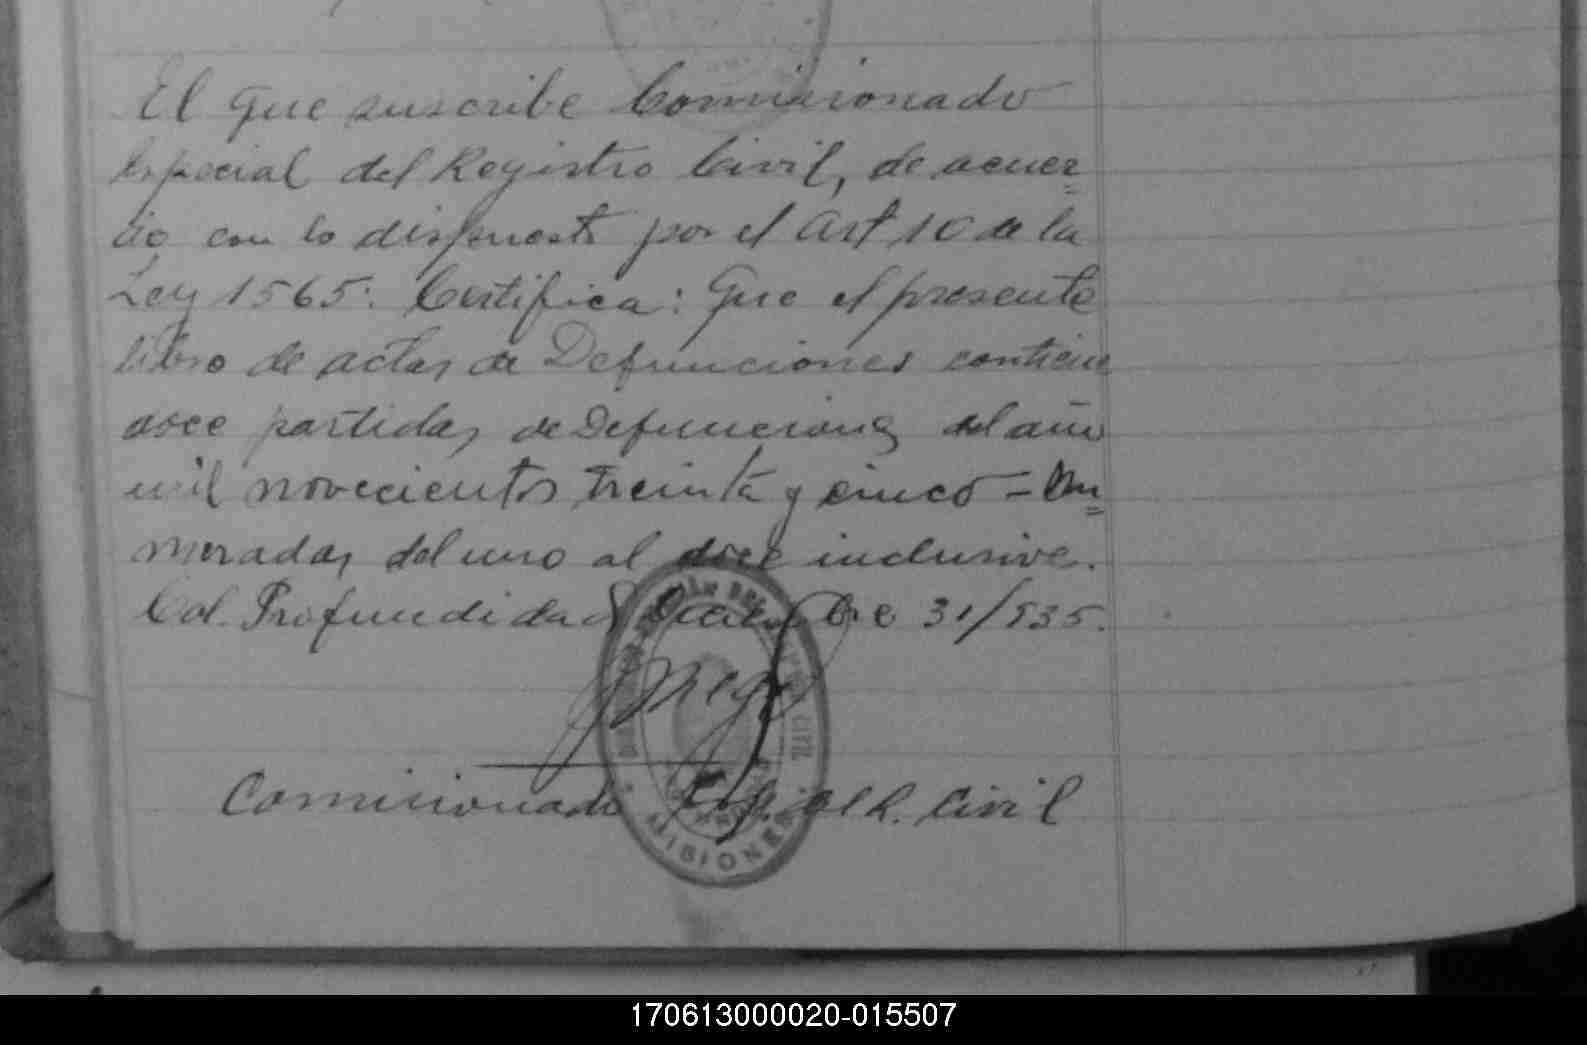 El que suscribe Comisionado
Especial del Registro Civil, de acuer=
do con lo dispuesto por el art 10 de la
Ley 1565: Certifica: Que el presente
libro de actas de Defunciones contiene
doce partidas de Defunciones del año
mil novecientos treinta y cinco - Nu=
meradas del uno al doce inclusive.
Col. Profundidad Diciembre 31/935.
Comisionado Esp. del R. Civil
CIVIL
MISIONES
170613000020-015507